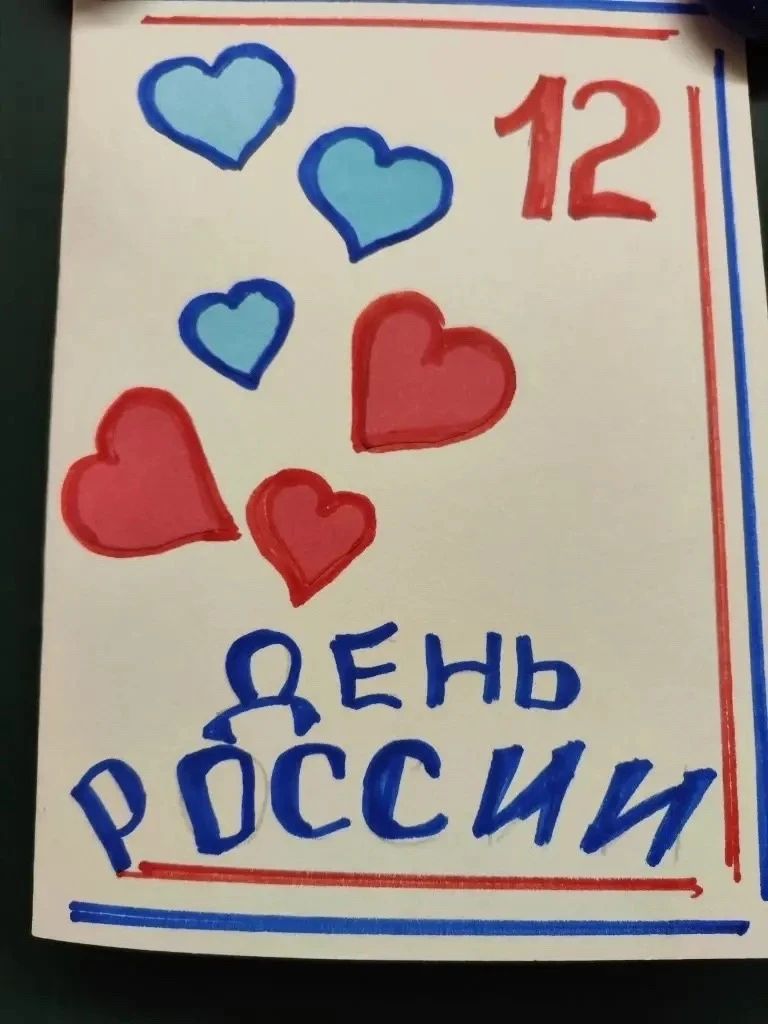 12
ДЕНЬ
РОССИИ